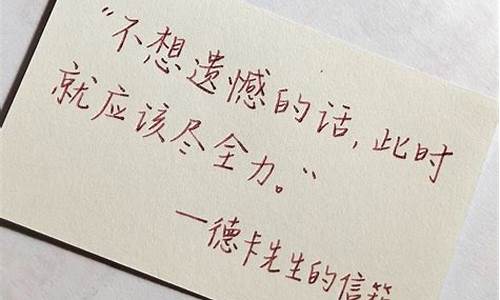 “不想遗憾的话，此时
就应该尽全力。”
—德卡先生的信箱